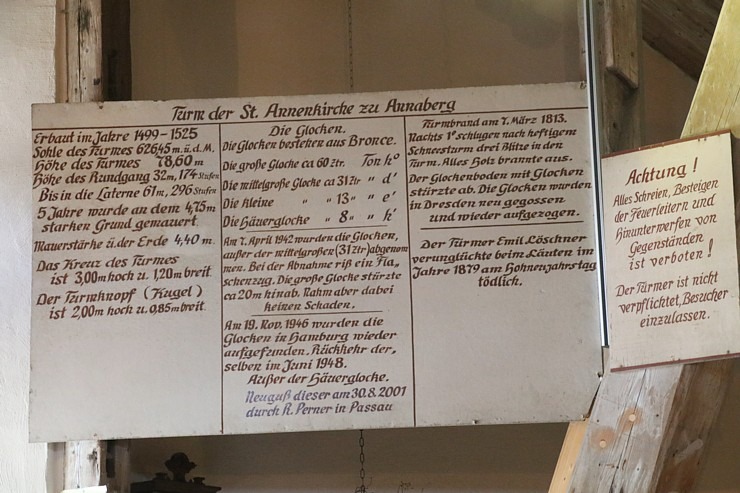 Turm der St. Annenkirche zu Annaberg
Erbaut im Jahre 1499-1525
Sohle des Turmes 626,45 m. ü.d. M.
Höhe des Turmes 78,60 m
Höhe des Rundgang 32m, 174 Stufen
Bis in die Laterne 61m, 296 Stufen
5 Jahre wurde an dem 4,75m
starken Grund gemauert.
Mauerstärke ü.der Erde 4,40 m.
Das Kreuz des Turmes
ist 3,00m hoch u. 1,20m breit
Der Turmknopf (Kugel)
ist 2,00m hoch u. 0,85m breit
Die Glocken.
Die Glocken bestehen aus Bronce.
Die große Glocke ca 60 Ztr. Ton h°
Die mittelgroße Glocke ca 31 Ztr " d'
Die kleine " " 13 " e'
Die Häuerglocke " 8 " h'
Am 7. April 1942 wurden die Glocken,
außer der mittelgroßen (31 Ztr) abgenom
men. Bei der Abnahme riß ein Fla„
schenzug. Die große Glocke stürzte
ca 20m hinab. Nahm aber dabei
keinen Schaden.
Am 19. Nov. 1946 wurden die
Glocken in Hamburg wieder
aufgefunden. Rückkehr der„
selben im Juni 1948.
Außer der Häuerglocke.
Neuguß dieser am 30.8.2001
durch R. Perner in Passau
Turmbrand am 7. März 1813.
Nachts 1° schlugen nach heftigem
Schneesturm drei Blitze in den
Turm. Alles Holz brannte aus.
Der Glockenboden mit Glocken
stürzte ab. Die Glocken wurden
in Dresden neu gegossen
und wieder aufgezogen.
Der Türmer Emil Löschner
verunglückte beim Läuten im
Jahre 1879 am Hohneujahrstag
tödlich.
Achtung!
Alles Schreien, Besteigen
der Feuerleitern und
Hinunterwerfen von
Gegenständen
ist verboten!
Der Türmer ist nicht
verpflichtet, Besucher
einzulassen.